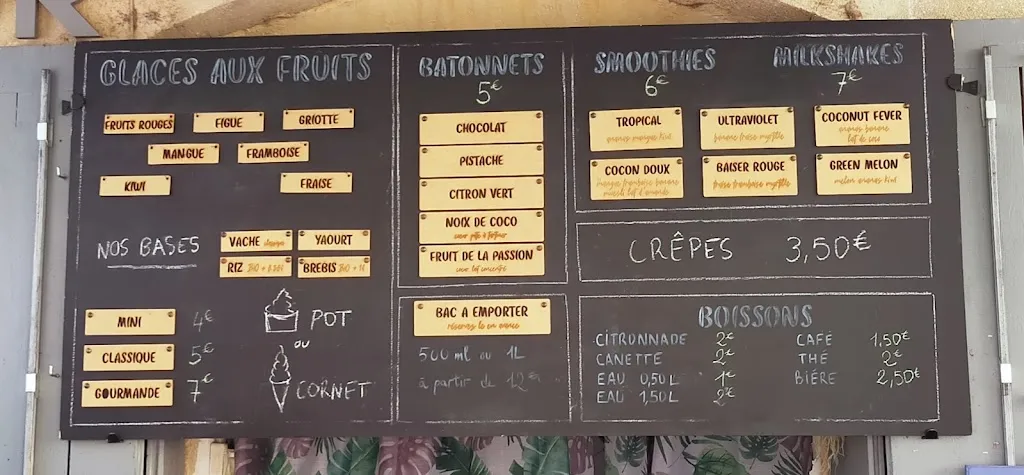 GLACES AUX FRUITS
FRUITS ROUGES
FIGUE
GRIOTTE
MANGUE
FRAMBOISE
KIWI
FRAISE
NOS BASES
VACHE
YAOURT
RIZ
BREBIS
MINI 4€
CLASSIQUE 5€
GOURMANDE 7€
POT
ou
CORNET
BATONNETS
5€
CHOCOLAT
PISTACHE
CITRON VERT
NOIX DE COCO
FRUIT DE LA PASSION
BAC A EMPORTER
500 ml ou 1L
à partir de 12€
SMOOTHIES
6€
MILKSHAKES
7€
TROPICAL
ananas mangue kiwi
ULTRAVIOLET
banane fraise myrtille
COCONUT FEVER
ananas banane
lait de coco
COCON DOUX
mangue framboise banane
BAISER ROUGE
fraise framboise myrtille
GREEN MELON
melon ananas kiwi
CRÊPES 3,50€
BOISSONS
CITRONNADE 2€
CANETTE 2€
EAU 0,50L 1€
EAU 1,50L 2€
CAFÉ 1,50€
THÉ 2€
BIÈRE 2,50€